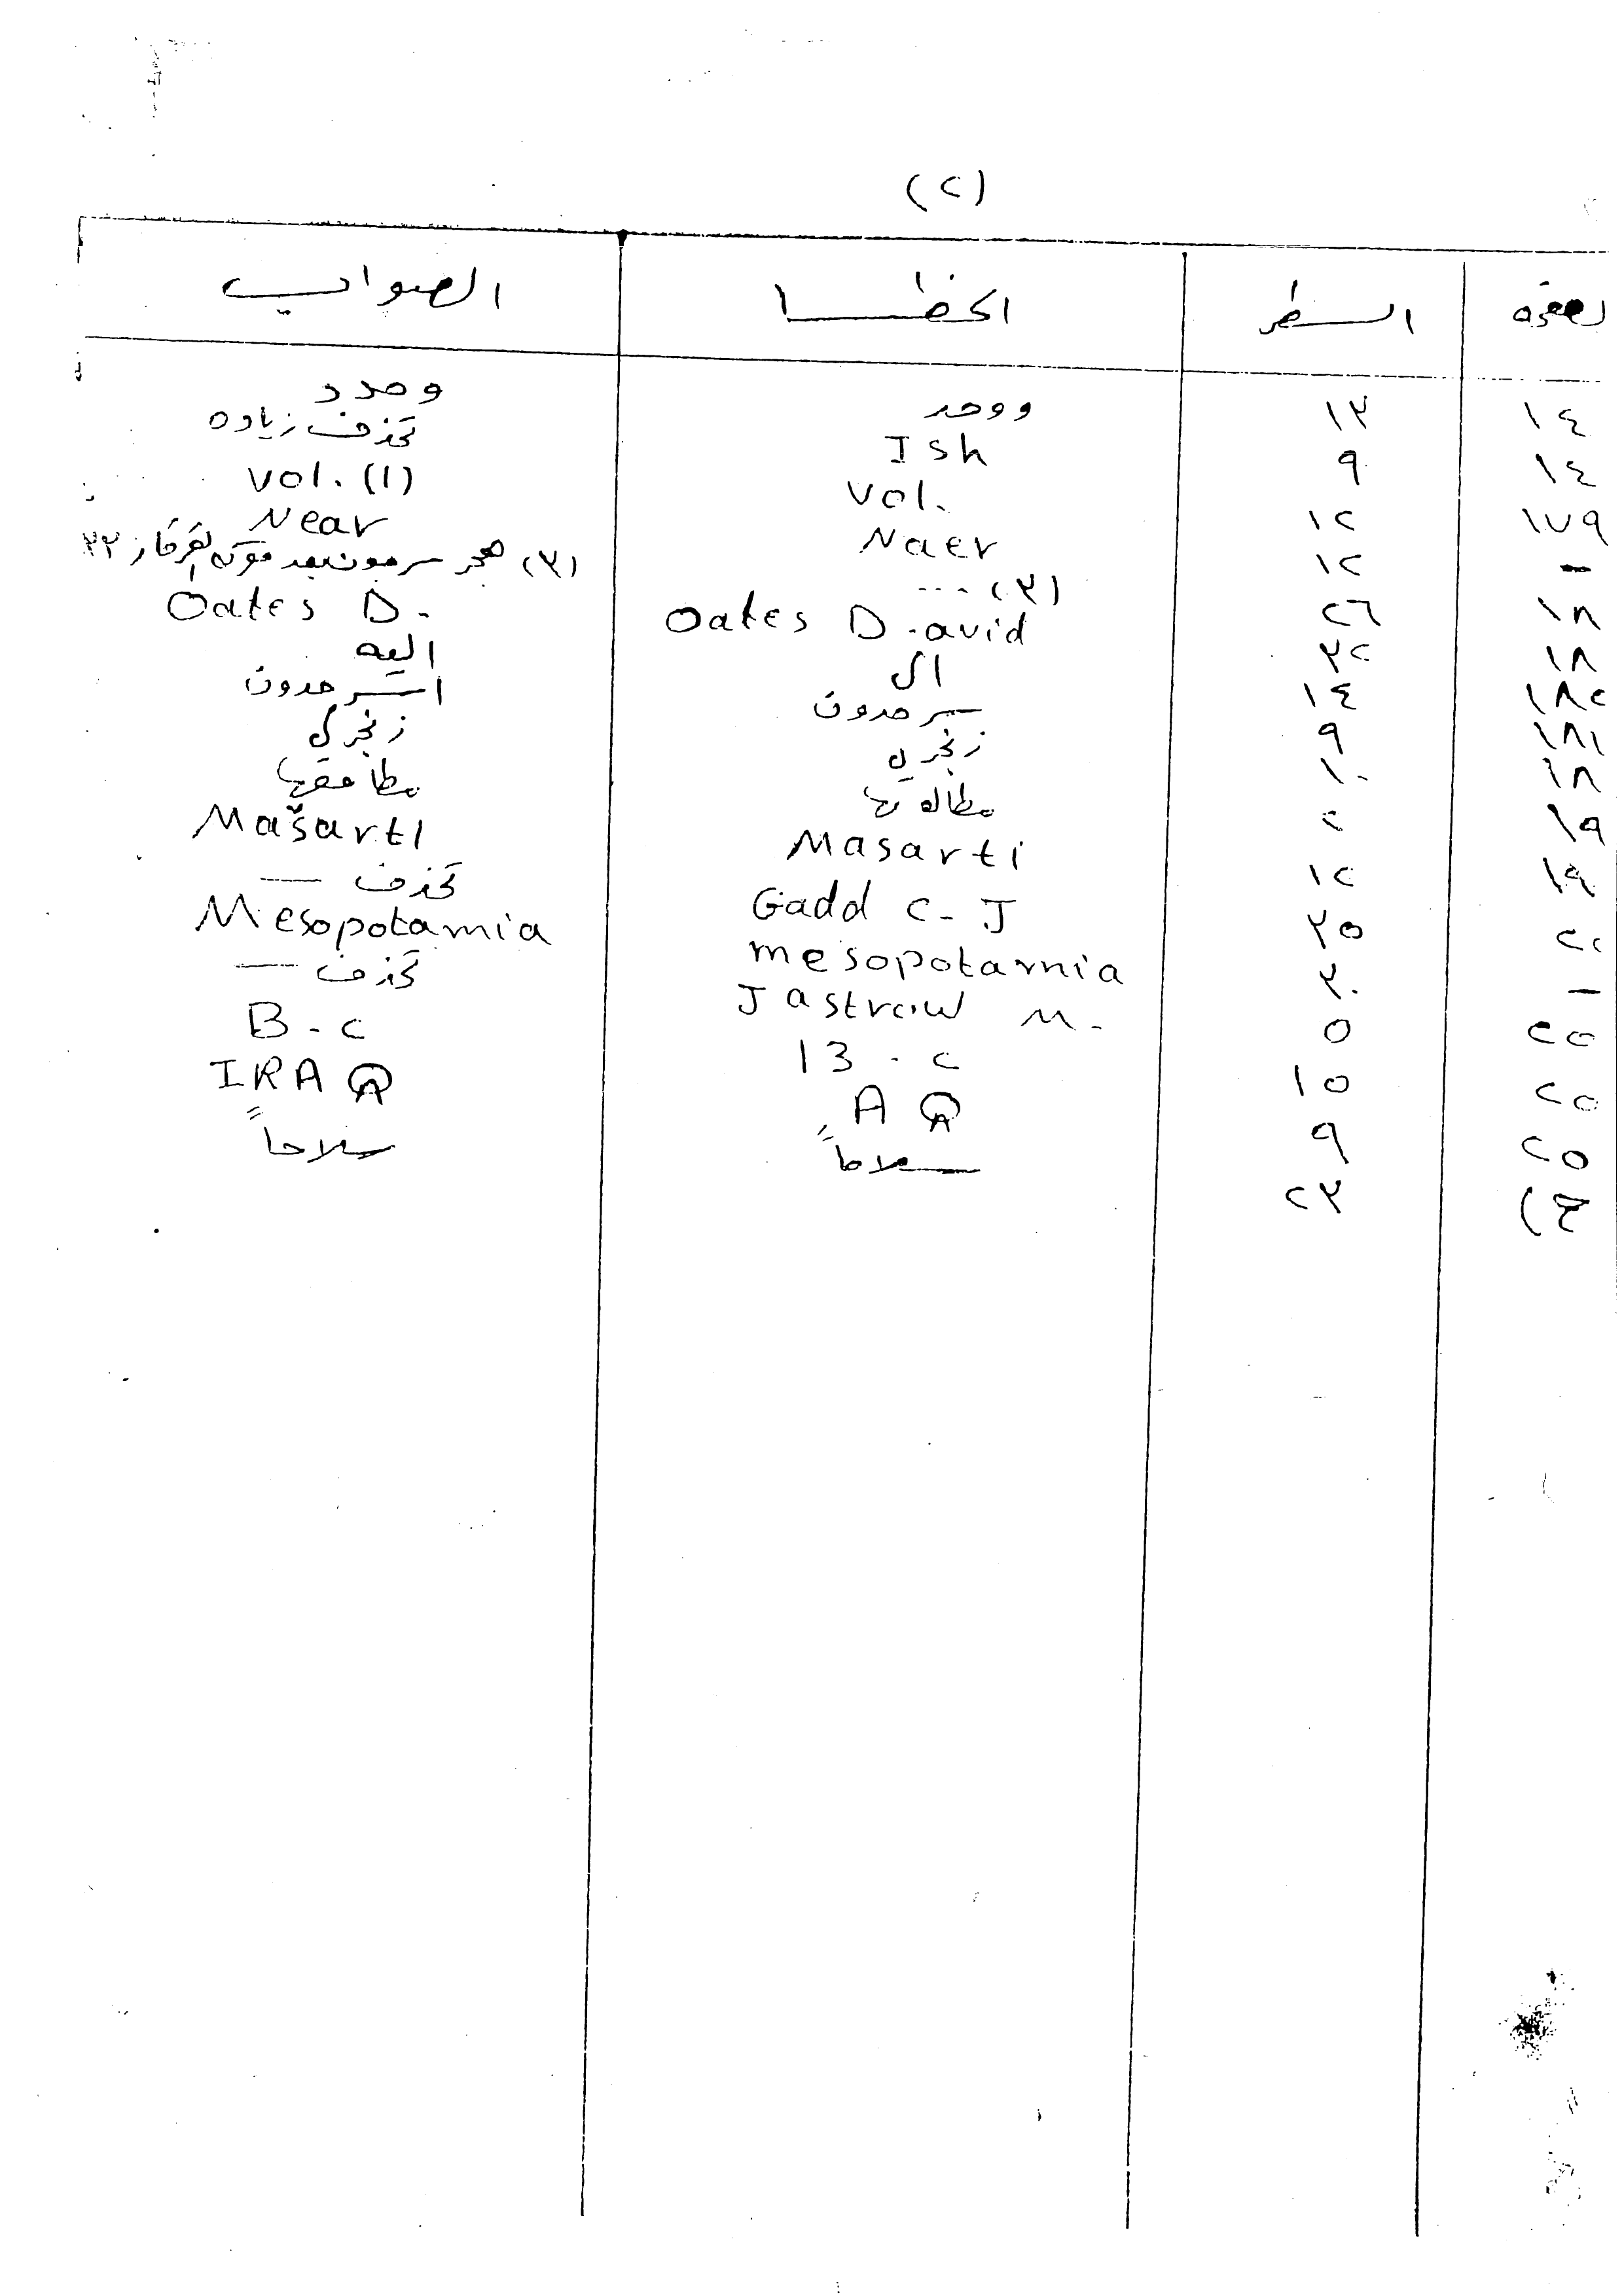 (٢)
الصفحة السطر الخطـــا الصواب
١٤ ١٣ ووحد وحدد
١٤ ٩ Ish تحذف زياده
١٧٩ ١٢ Vol. Vol. (1)
- ١٢ Naer Near
١٨ ٢٦ (٣) ... (٣) هجر سرجون بعد
١٨ ٣٢ Oates D.avid Oates D.
١٨٢ ١٤ ال اليه
١٨١ ٩ سرحدون اسرحدون
١٨ ١٠ زنجري زنجرلي
١٩ ٢
١٩ ١٢ Masarti Mašarti
٢٢ ٣٥ Gadd C. J تحذف —
- ٣٠ mesopotamia Mesopotamia
٢٥ ٥ Jastrow M. تحذف —
٢٥ ١٥ 13 . C B . C
٢٥ ٩ AQ IRAQ
٢٣ سلاماً سلاحاً